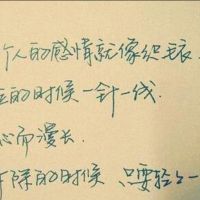 个人的感情就像织毛衣
的时候一针一线
心而漫长
除的时候 只要轻轻一